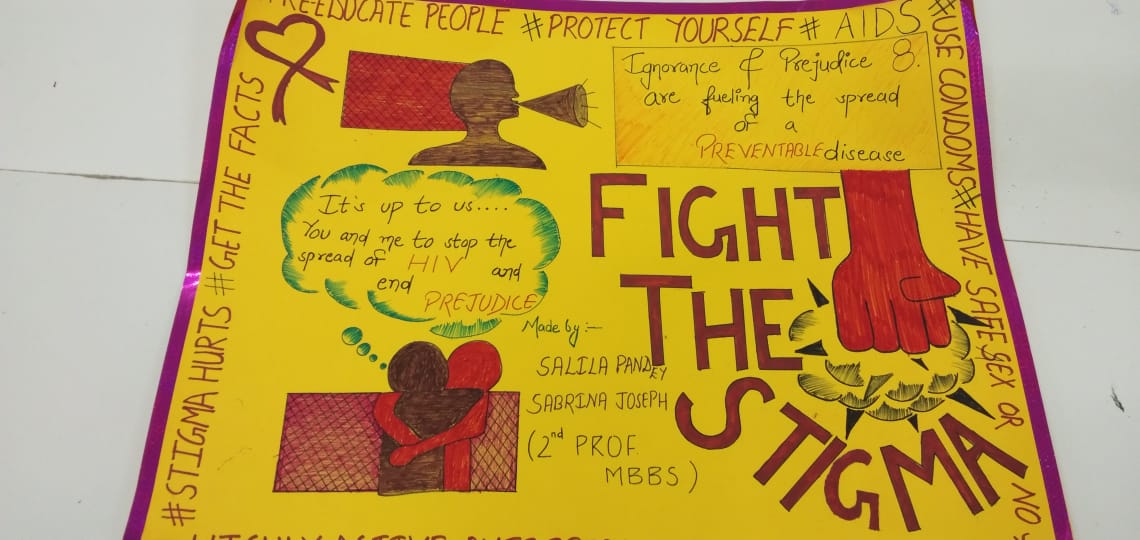 #REEDUCATE PEOPLE #PROTECT YOURSELF # AIDS
#USE CONDOMS#HAVE SAFE SEX OR NO
#STIGMA HURTS #GET THE FACTS
Ignorance & Prejudice 8.
are fueling the spread
of a
PREVENTABLE disease
FIGHT
THE
STIGMA
It's up to us....
You and me to stop the
spread of HIV and
end
PREJUDICE
Made by :-
SALILA PANDEY
SABRINA JOSEPH
(2nd PROF.
MBBS)